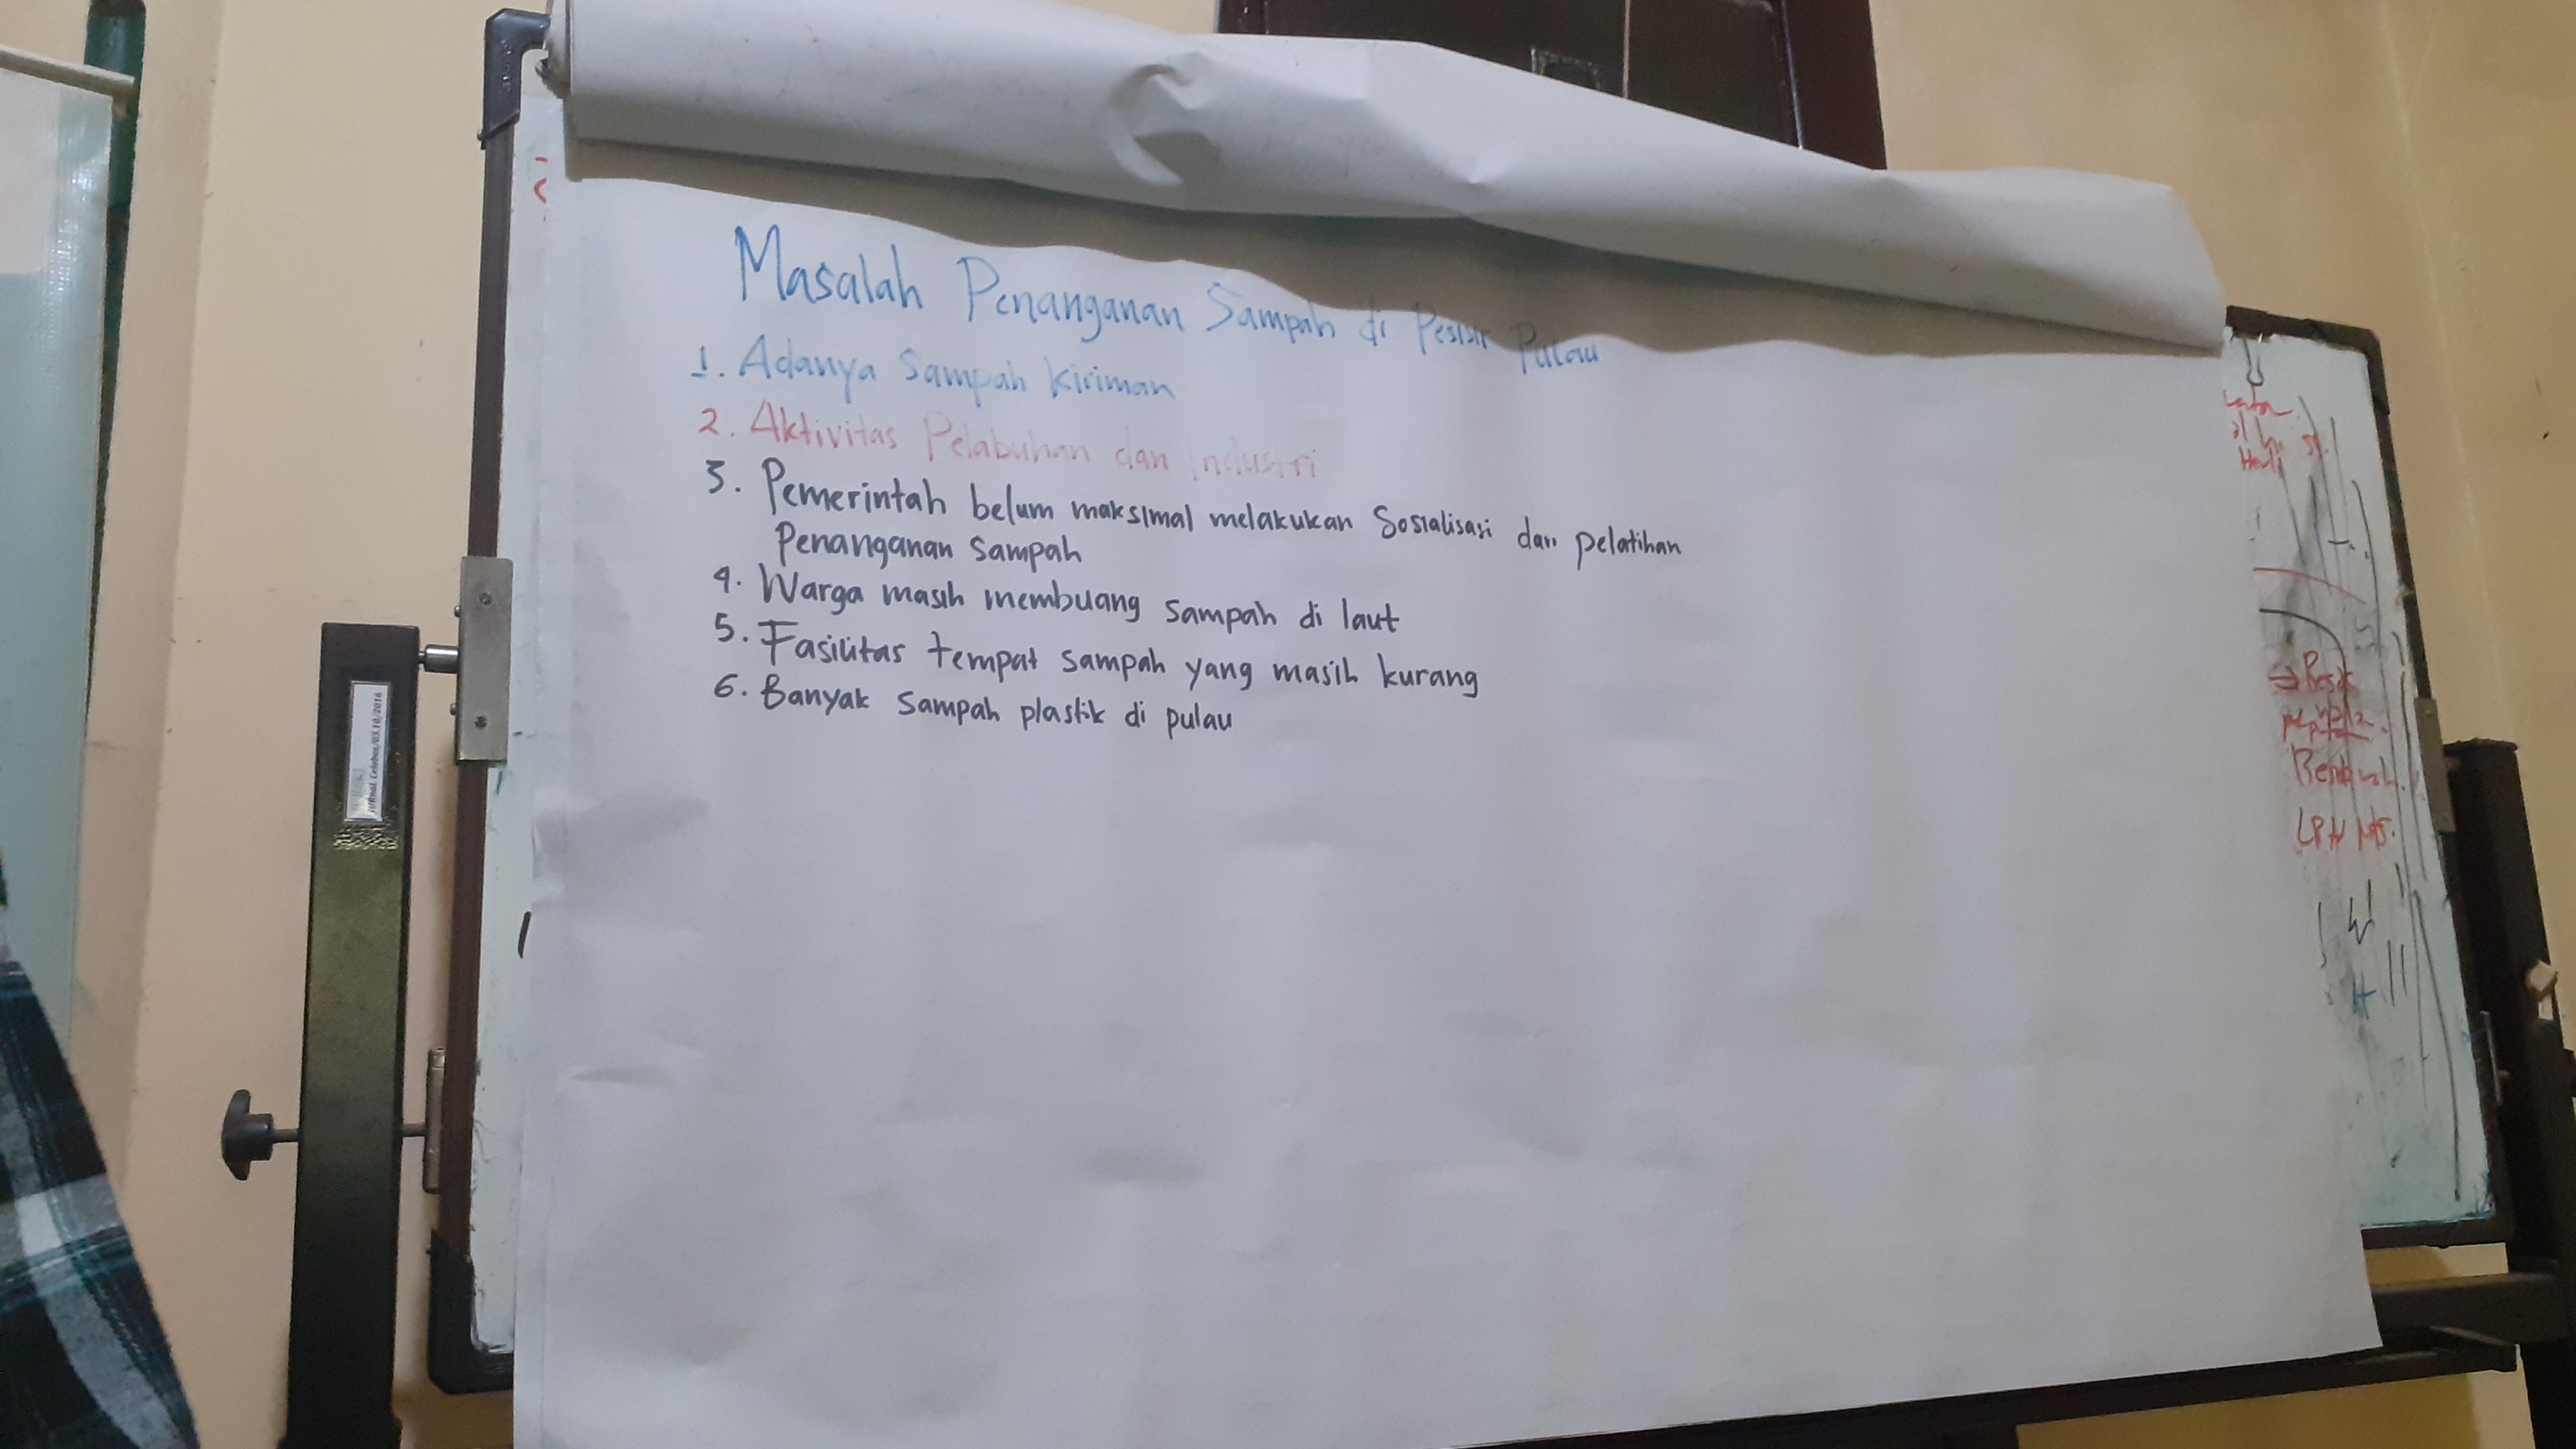 Masalah Penanganan Sampah di Pesisir Pulau
1. Adanya Sampah kiriman
2. Aktivitas Pelabuhan dan Industri
3. Pemerintah belum maksimal melakukan Sosialisasi dan pelatihan
Penanganan Sampah
4. Warga masih membuang sampah di laut
5. Fasilitas tempat sampah yang masih kurang
6. Banyak sampah plastik di pulau